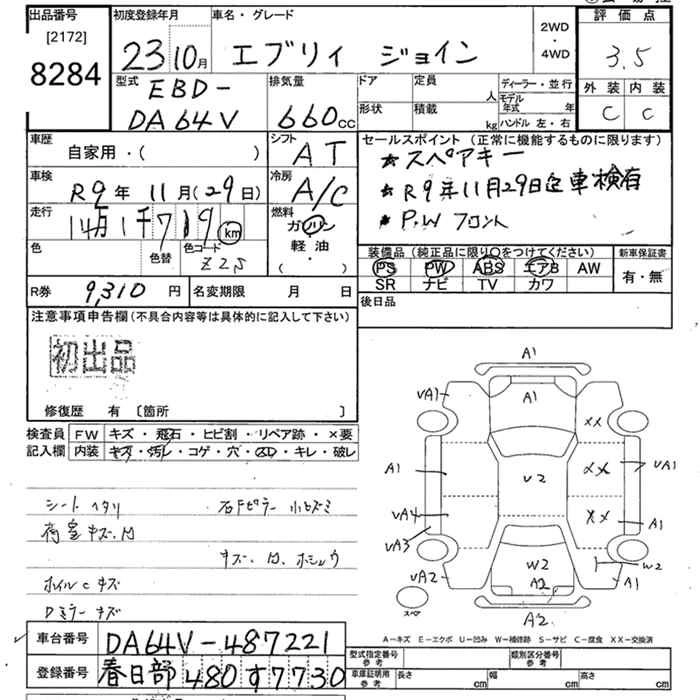 出品番号 初度登録年月 車名・グレード 評価点
[2172] 23 10月 エブリィ ジョイン 2WD・4WD 3.5
8284 外装 内装
型式 排気量 ドア 定員 人 ディーラー・並行 C C
EBD-
DA64V 660cc 形状 積載 kg モデル年式 年 ハンドル 左・右
車歴 シフト セールスポイント (正常に機能するものに限ります)
自家用・( ) AT ★スペアキー
車検 冷房 ★R9年11月29日迄車検有
R9年 11月(29日) A/C ★P.W フロント
走行 燃料
14万1千719km ガソリン
軽油
( ・ )
色 色替 色コード Z2S
装備品 (純正品に限り○をつけてください) 新車保証書
PS PW ABS エアB AW 有・無
SR ナビ TV カワ
R券 9,310円 名変期限 月 日 後日品
注意事項申告欄 (不具合内容等は具体的に記入して下さい)
初出品
修復歴 有 〔箇所 〕
検査員 FW キズ・飛石・ヒビ割・リペア跡・×要
記入欄 内装 キズ・汚レ・コゲ・穴・・キレ・破レ
シート ヘタリ 右Fピラー 小ヒズミ
荷室 キズ、凹
キズ、凹、ホシュウ
ホイルc キズ
Dミラー キズ
A1
UA1 A1 XX
A1 U2 XX UA1
UA4 XX A1
UA3
UA2 W2 W2
A2 A1
スペア A2
A-キズ E-エクボ U-凹み W-補修跡 S-サビ C-腐食 XX-交換済
車台番号 DA64V-487221
登録番号 春日部 480 す7730
型式指定番号 参考 類別区分番号 参考
車庫証明用 参考 長さ cm 幅 cm 高さ cm